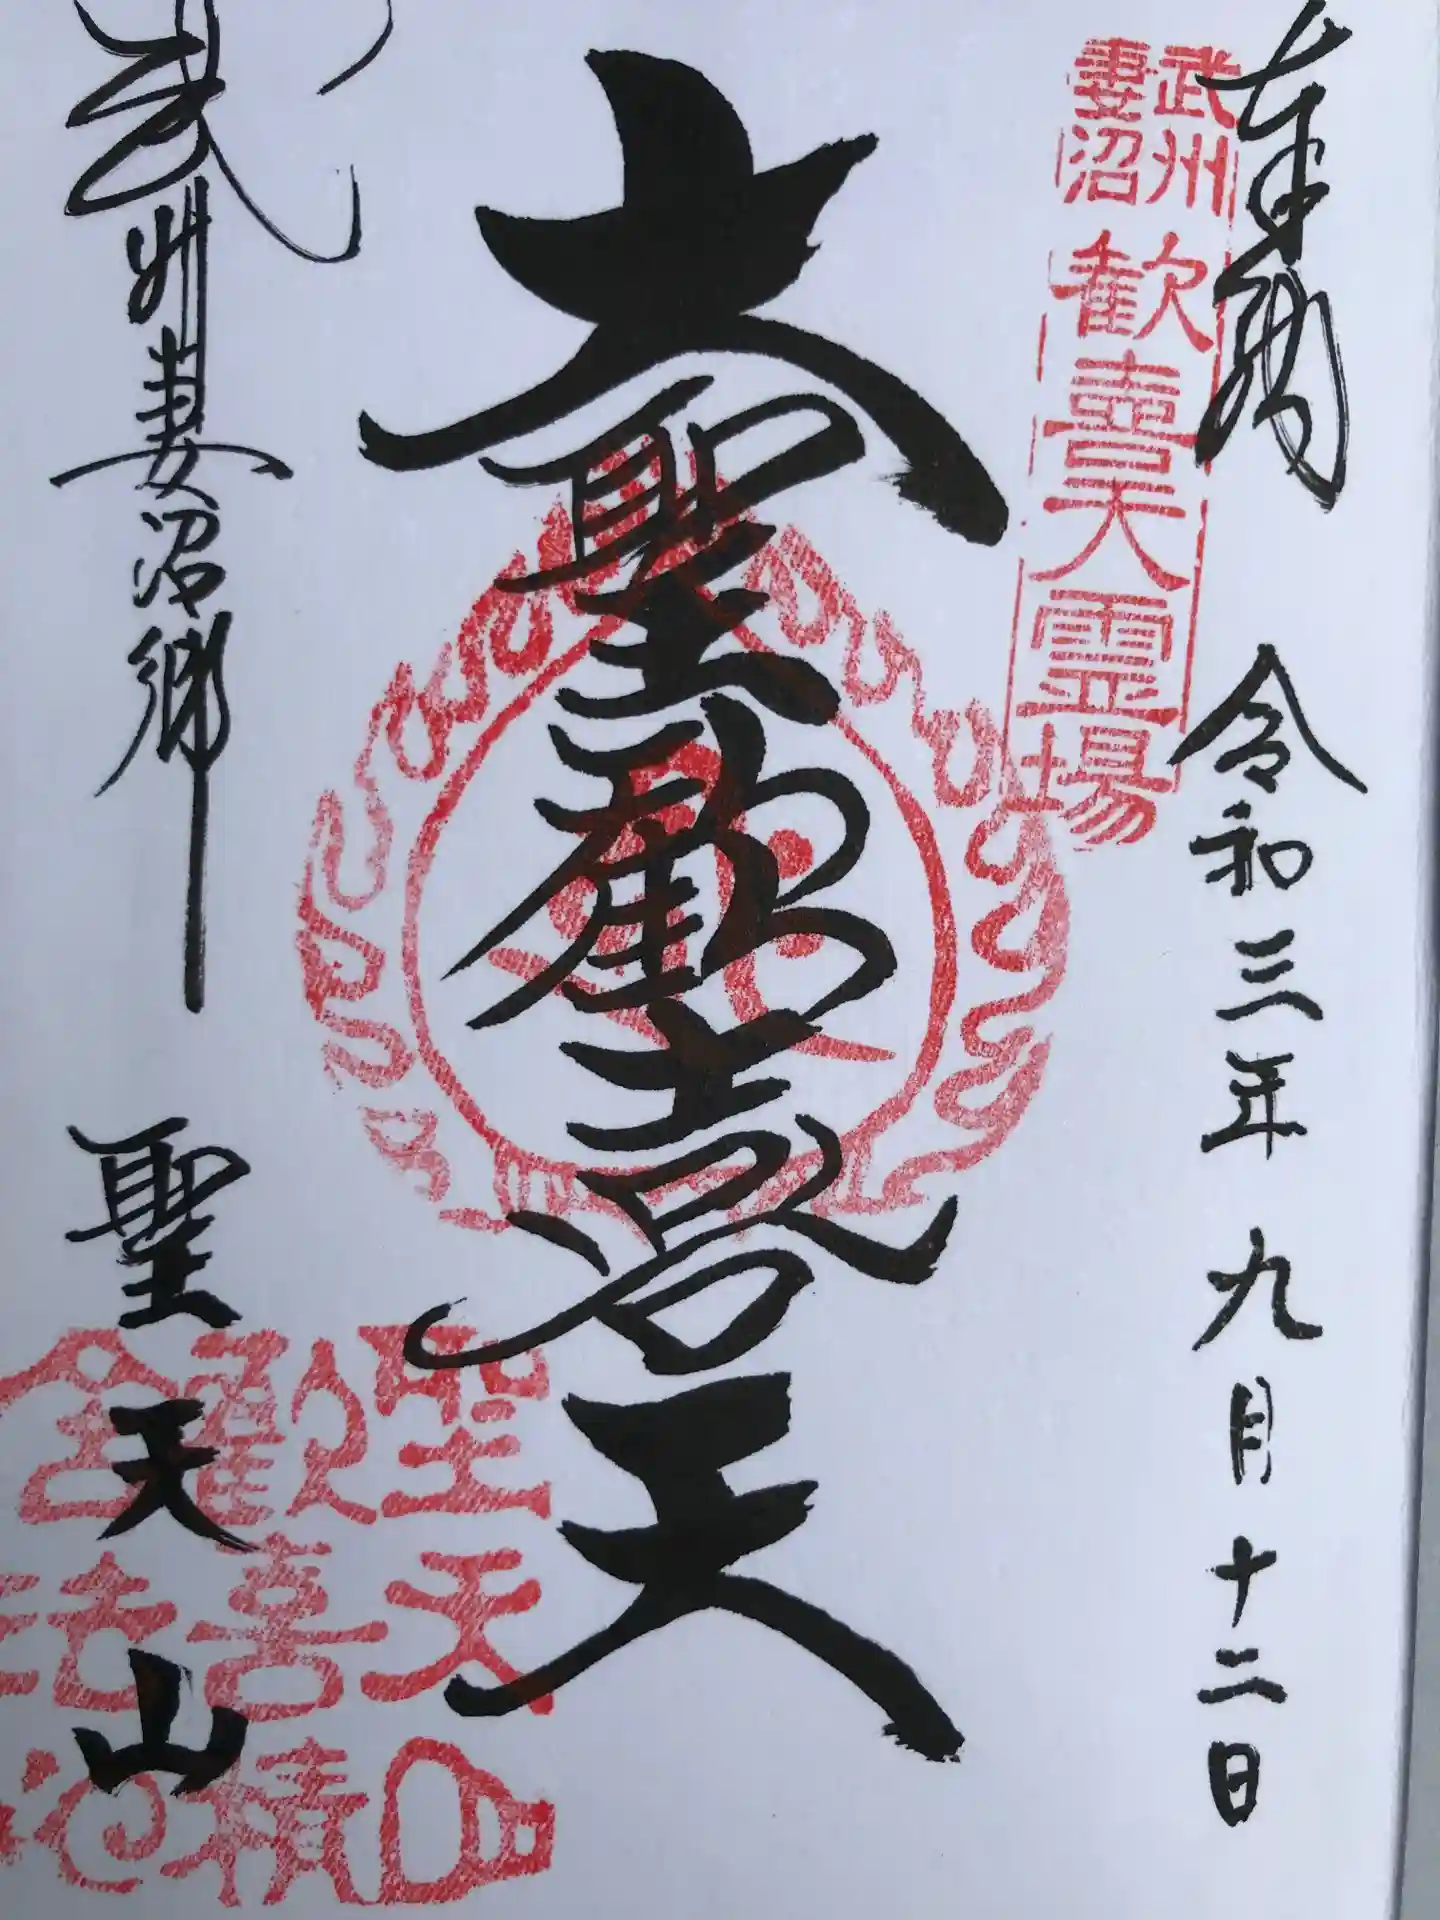 奉納
令和三年九月十二日
武州
妻沼
歓喜天霊場
大聖歓喜天
武州妻沼郷
聖天山
聖天山
歓喜